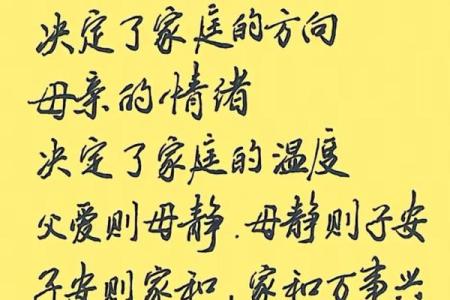 决定了家庭的方向
母亲的情绪
决定了家庭的温度
父爱则母静.母静则子安
子安则家和,家和万事兴